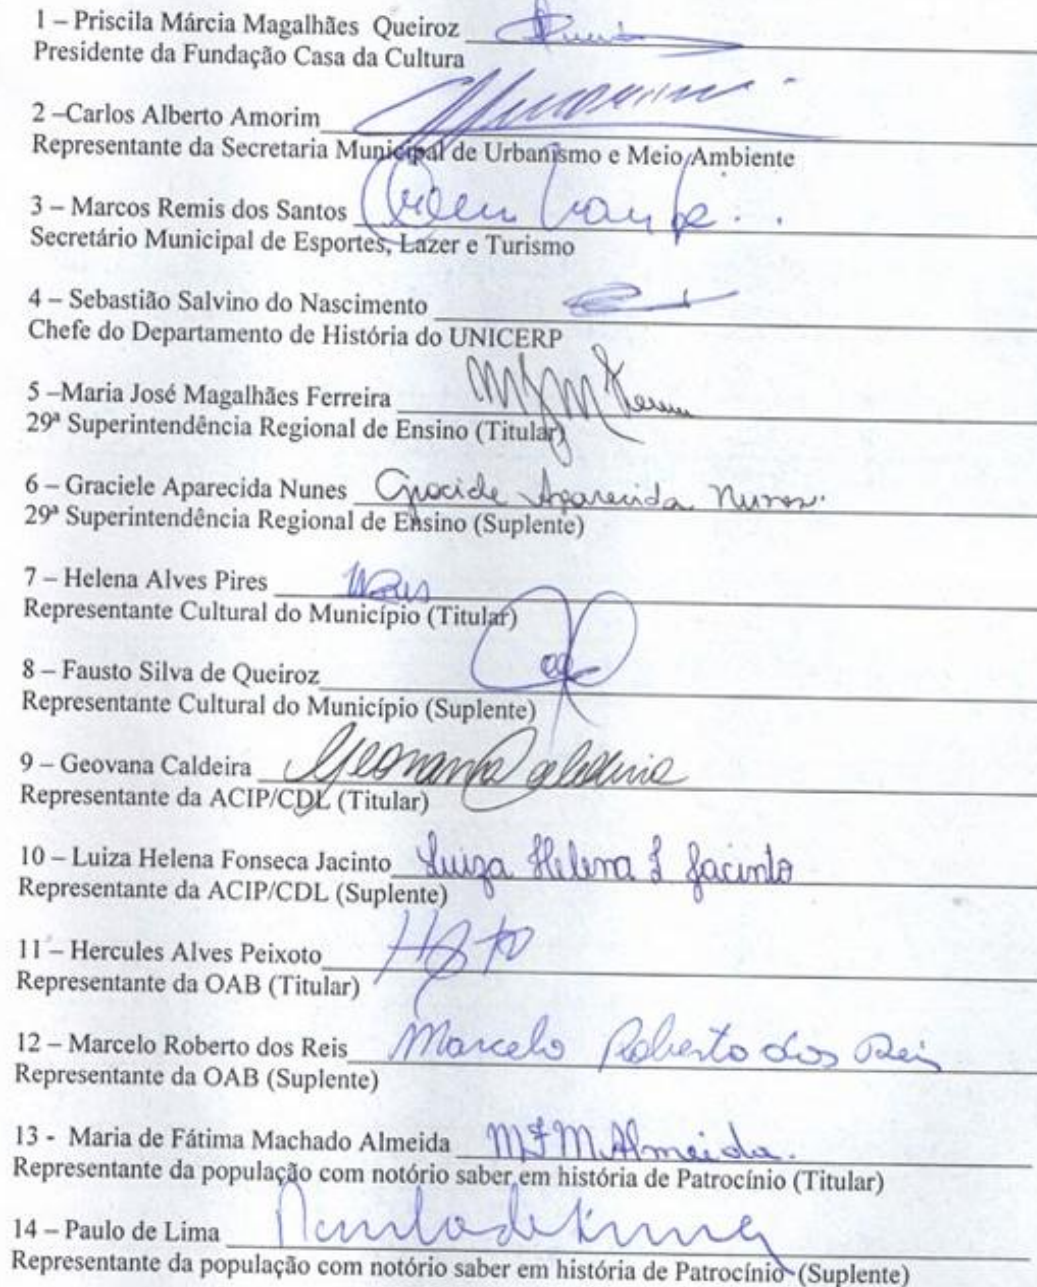 1 – Priscila Márcia Magalhães Queiroz
Presidente da Fundação Casa da Cultura
2 –Carlos Alberto Amorim
Representante da Secretaria Municipal de Urbanismo e Meio Ambiente
3 – Marcos Remis dos Santos
Secretário Municipal de Esportes, Lazer e Turismo
4 – Sebastião Salvino do Nascimento
Chefe do Departamento de História do UNICERP
5 –Maria José Magalhães Ferreira
29ª Superintendência Regional de Ensino (Titular)
6 – Graciele Aparecida Nunes Graciele Aparecida Nunes.
29ª Superintendência Regional de Ensino (Suplente)
7 – Helena Alves Pires
Representante Cultural do Município (Titular)
8 – Fausto Silva de Queiroz
Representante Cultural do Município (Suplente)
9 – Geovana Caldeira Geovana Caldeira
Representante da ACIP/CDL (Titular)
10 – Luiza Helena Fonseca Jacinto Luiza Helena F Jacinto
Representante da ACIP/CDL (Suplente)
11 – Hercules Alves Peixoto
Representante da OAB (Titular)
12 – Marcelo Roberto dos Reis Marcelo Roberto dos Reis
Representante da OAB (Suplente)
13 - Maria de Fátima Machado Almeida MFMAlmeida.
Representante da população com notório saber em história de Patrocínio (Titular)
14 – Paulo de Lima
Representante da população com notório saber em história de Patrocínio (Suplente)